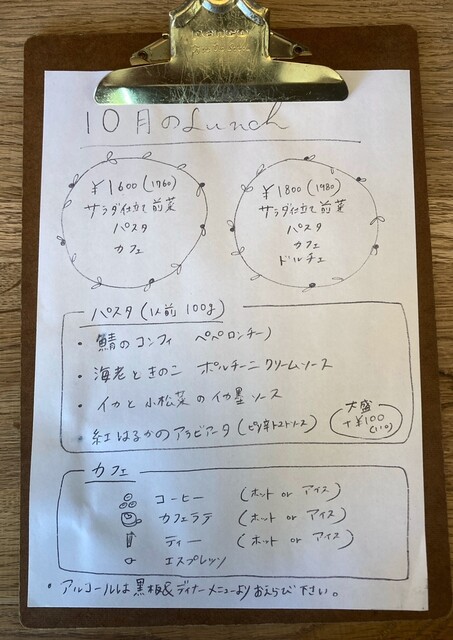 10月のLunch
¥1600(1760)
サラダ仕立て前菜
パスタ
カフェ
¥1800(1980)
サラダ仕立て前菜
パスタ
カフェ
ドルチェ
パスタ(1人前 100g)
・鯖のコンフィ ペペロンチーノ
・海老ときのこ ポルチーニクリームソース
・イカと小松菜のイカ墨ソース
・紅はるかのアラビアータ(ピリ辛トマトソース)
大盛
+¥100
(110)
カフェ
コーヒー (ホット or アイス)
カフェラテ (ホット or アイス)
ティー (ホット or アイス)
エスプレッソ
・アルコールは黒板&ディナーメニューよりおえらび下さい。